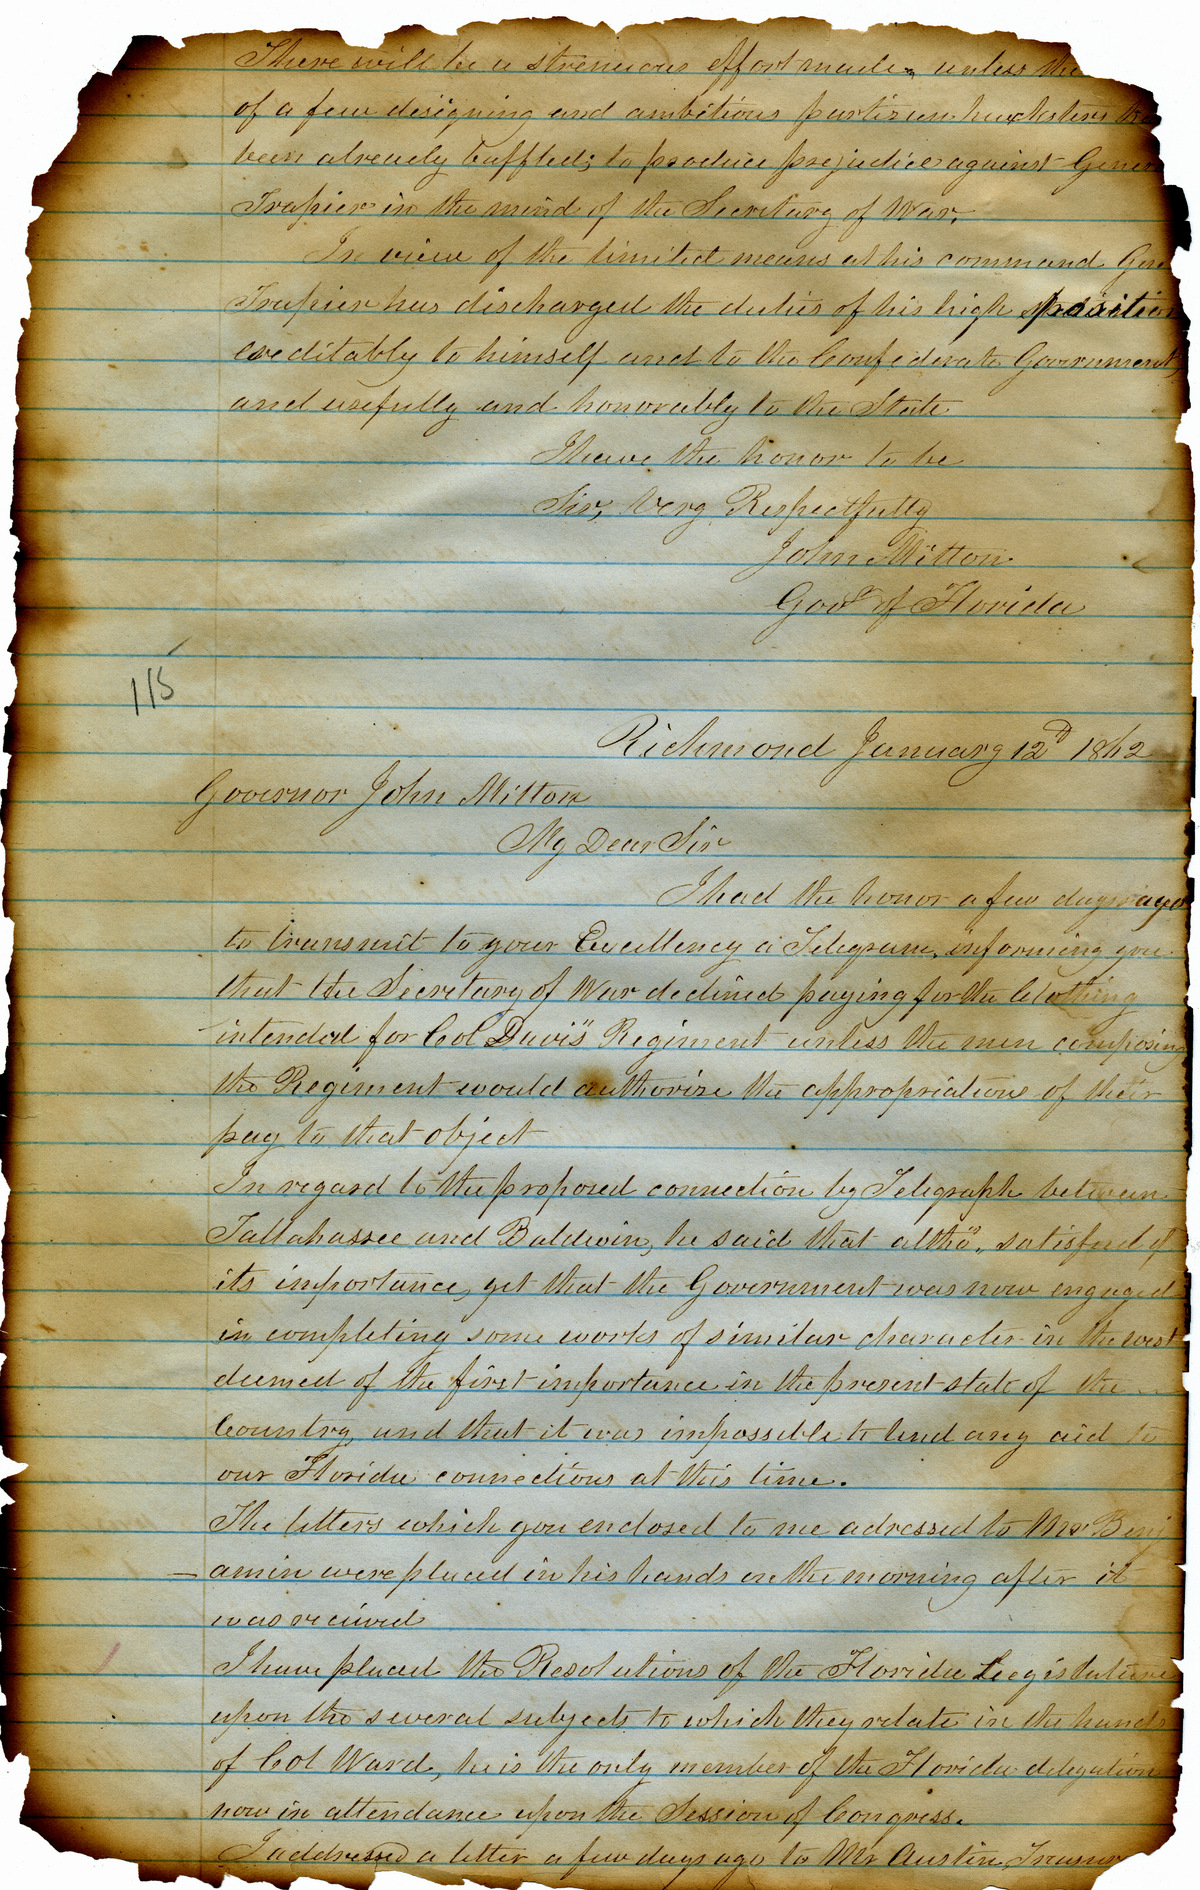 There will be a strenuous effort made, unless the
of a few designing and ambitious partizan hucksters ha
been already baffled; to produce prejudice against Gener
Trapier in the mind of the Secretary of War.
In view of the limited means at his command Gen
Trapier has discharged the duties of his high position
creditably to himself and to the Confederate Government,
and usefully and honorably to the State
I have the honor to be
Sir, Very Respectfully
John Milton
Govr of Florida
115
Richmond January 12th 1862
Governor John Milton
My Dear Sir
I had the honor a few days ago
to transmit to your Excellency a Telegram, informing you
that the Secretary of War declined paying for the Clothing
intended for Col Davis" Regiment unless the men composing
the Regiment would authorize the appropriations of their
pay to that object
In regard to the proposed connection by Telegraph between
Tallahassee and Baldwin, he said that altho", satisfied of
its importance, yet that the Government was now engaged
in completing some works of similar character in the west
deemed of the first importance in the present state of the
Country and that it was impossible to lend any aid to
our Florida connections at this time.
The letters which you enclosed to me adressed to Mr Benj
amin were placed in his hands on the morning after it
was received
I have placed the Resolutions of the Florida Legislature
upon the several subjects to which they relate in the hands
of Col Ward, he is the only member of the Florida delegation
now in attendance upon the Session of Congress.
I addressed a letter a few days ago to Mr Austin, Treasur